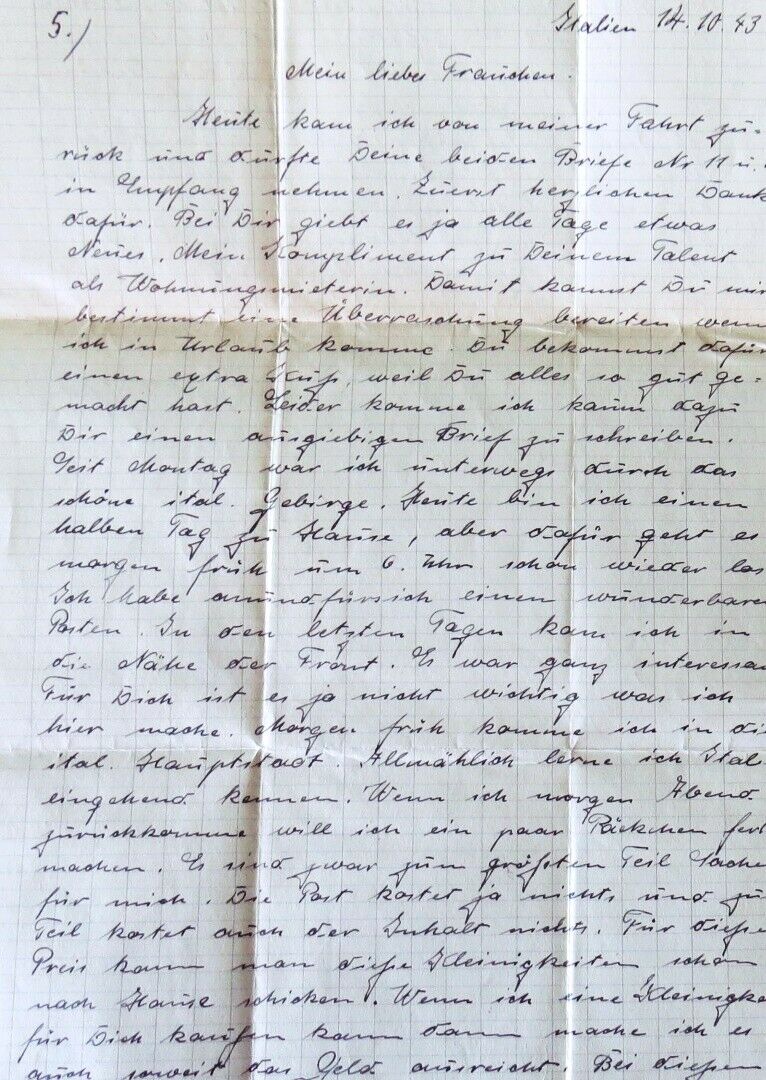 5.)
Italien 14.10.43
Mein liebes Frauchen.
Heute kam ich von meiner Fahrt zu=
rück und durfte Deine beiden Briefe Nr 11 u.
in Empfang nehmen. Zuerst herzlichen Dank
dafür. Bei Dir giebt es ja alle Tage etwas
Neues. Mein Kompliment zu Deinem Talent
als Wohnungsmieterin. Damit kannst Du mir
bestimmt eine Überraschung bereiten wenn
ich in Urlaub komme. Du bekommst dafür
einen extra Kuß, weil Du alles so gut ge=
macht hast. Leider komme ich kaum dazu
Dir einen ausgiebigen Brief zu schreiben.
Seit Montag war ich unterwegs durch das
schöne ital. Gebirge. Heute bin ich einen
halben Tag zu Hause, aber dafür geht es
morgen früh um 6. Uhr schon wieder los
Ich habe anundfürsich einen wunderbaren
Posten. In den letzten Tagen kam ich in
die Nähe der Front. Es war ganz interessan
Für Dich ist es ja nicht wichtig was ich
hier mache. Morgen früh komme ich in die
ital. Hauptstadt. Allmählich lerne ich Ital
eingehend kennen. Wenn ich morgen Abend
zurückkomme will ich ein paar Päckchen fert
machen. Es sind zwar zum größten Teil Sache
für mich. Die Post kostet ja nichts und zu
Teil kostet auch der Inhalt nichts. Für dieße
Preis kann man dieße Kleinigkeiten schon
nach Hause schicken. Wenn ich eine Kleinigke
für Dich kaufen kann dann mache ich es
auch soweit das Geld ausreicht. Bei dießen